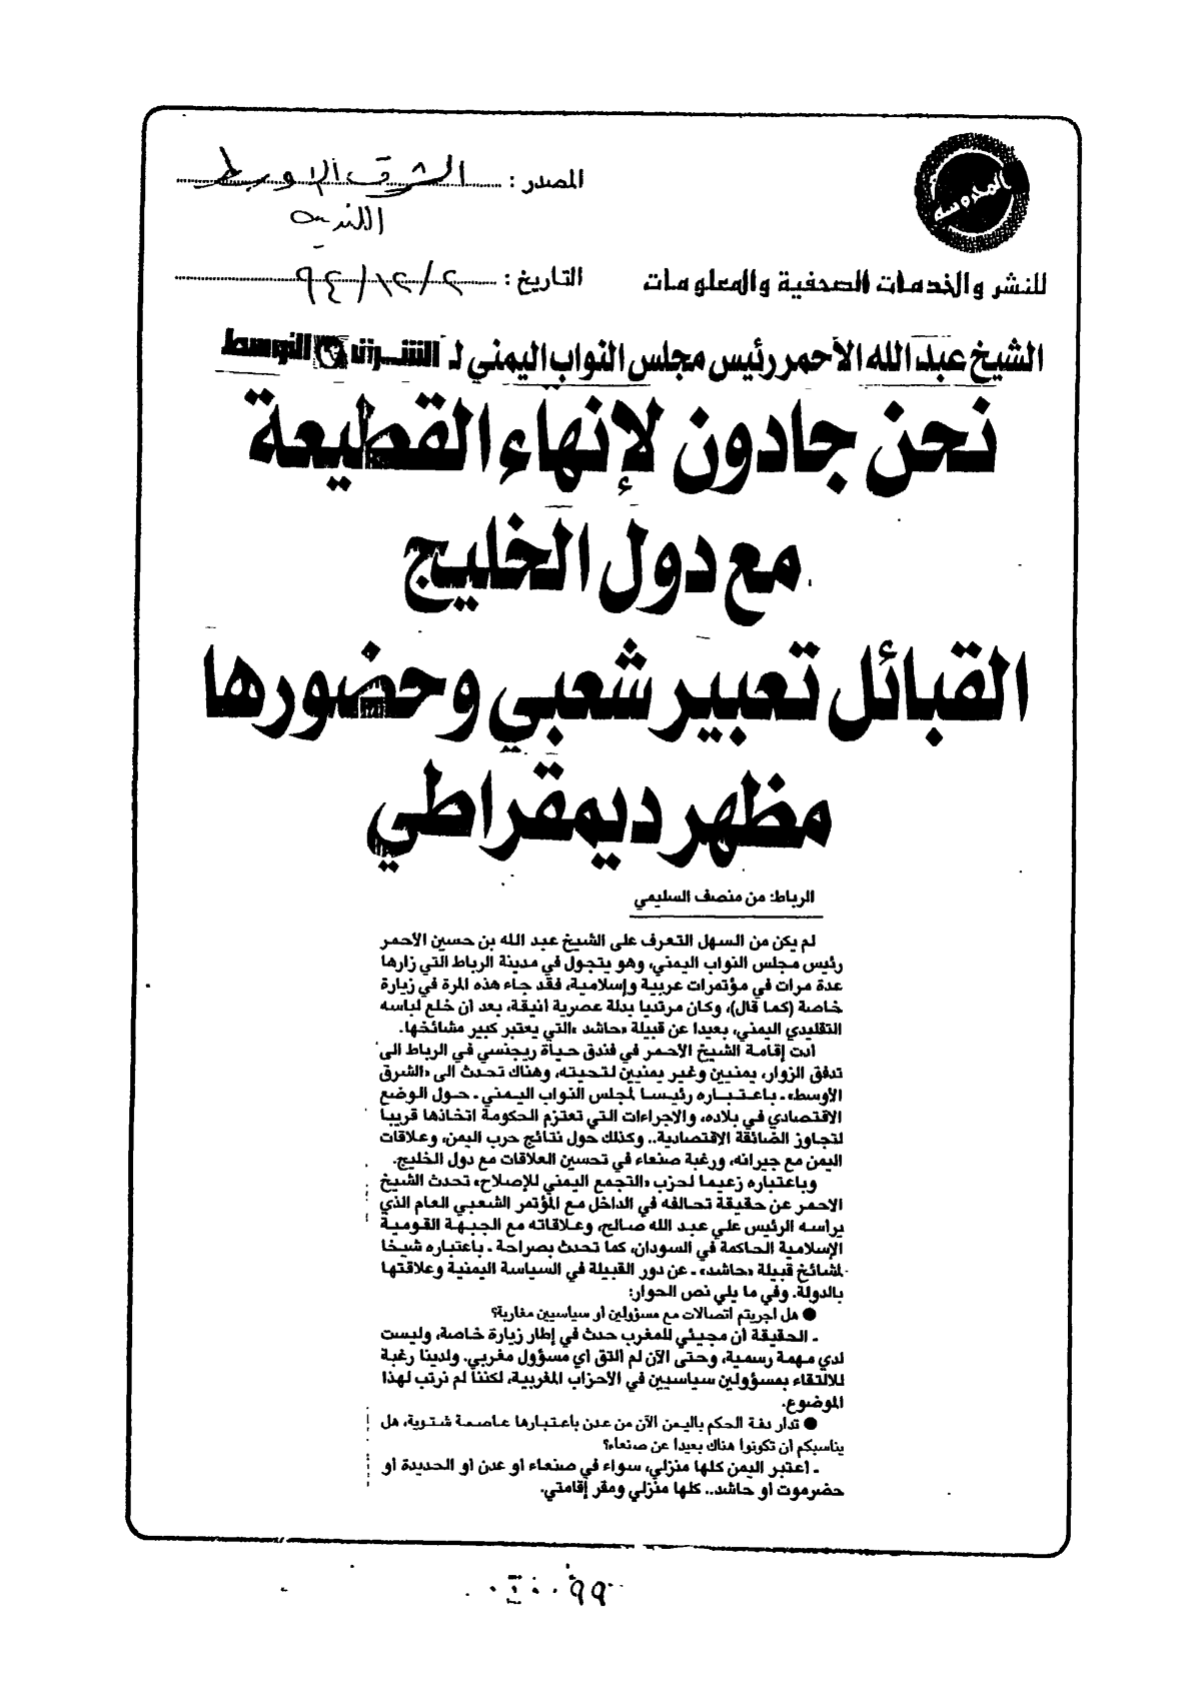 المدوسه
المصدر : الشرق الاوسط
اللندنيه
للنشر والخدمات الصحفية والمعلومات
التاريخ : ٢/١٢/٩٤
الشيخ عبد الله الأحمر رئيس مجلس النواب اليمني لـ الشرق الأوسط
نحن جادون لإنهاء القطيعة
مع دول الخليج
القبائل تعبير شعبي وحضورها
مظهر ديمقراطي
الرباط: من منصف السليمي
لم يكن من السهل التعرف على الشيخ عبد الله بن حسين الأحمر
رئيس مجلس النواب اليمني، وهو يتجول في مدينة الرباط التي زارها
عدة مرات في مؤتمرات عربية وإسلامية، فقد جاء هذه المرة في زيارة
خاصة (كما قال)، وكان مرتديا بدلة عصرية أنيقة، بعد أن خلع لباسه
التقليدي اليمني، بعيدا عن قبيلة «حاشد» التي يعتبر كبير مشائخها.
أدت إقامة الشيخ الأحمر في فندق حياة ريجنسي في الرباط الى
تدفق الزوار، يمنيين وغير يمنيين لتحيته، وهناك تحدث الى «الشرق
الأوسط» ـ باعتباره رئيسا لمجلس النواب اليمني ـ حول الوضع
الاقتصادي في بلاده، والاجراءات التي تعتزم الحكومة اتخاذها قريبا
لتجاوز الضائقة الاقتصادية.. وكذلك حول نتائج حرب اليمن، وعلاقات
اليمن مع جيرانه، ورغبة صنعاء في تحسين العلاقات مع دول الخليج.
وباعتباره زعيما لحزب «التجمع اليمني للإصلاح» تحدث الشيخ
الاحمر عن حقيقة تحالفه في الداخل مع المؤتمر الشعبي العام الذي
يراسه الرئيس علي عبد الله صالح، وعلاقاته مع الجبهة القومية
الإسلامية الحاكمة في السودان، كما تحدث بصراحة ـ باعتباره شيخا
لمشائخ قبيلة «حاشد» ـ عن دور القبيلة في السياسة اليمنية وعلاقتها
بالدولة. وفي ما يلي نص الحوار:
● هل اجريتم اتصالات مع مسؤولين أو سياسيين مغاربة؟
ـ الحقيقة أن مجيئي للمغرب حدث في إطار زيارة خاصة، وليست
لدي مهمة رسمية، وحتى الآن لم التق اي مسؤول مغربي. ولدينا رغبة
للالتقاء بمسؤولين سياسيين في الأحزاب المغربية، لكننا لم نرتب لهذا
الموضوع.
● تدار دفة الحكم باليمن الآن من عدن باعتبارها عاصمة شتوية، هل
يناسبكم أن تكونوا هناك بعيدا عن صنعاء؟
ـ أعتبر اليمن كلها منزلي، سواء في صنعاء او عدن او الحديدة أو
حضرموت أو حاشد.. كلها منزلي ومقر إقامتي.